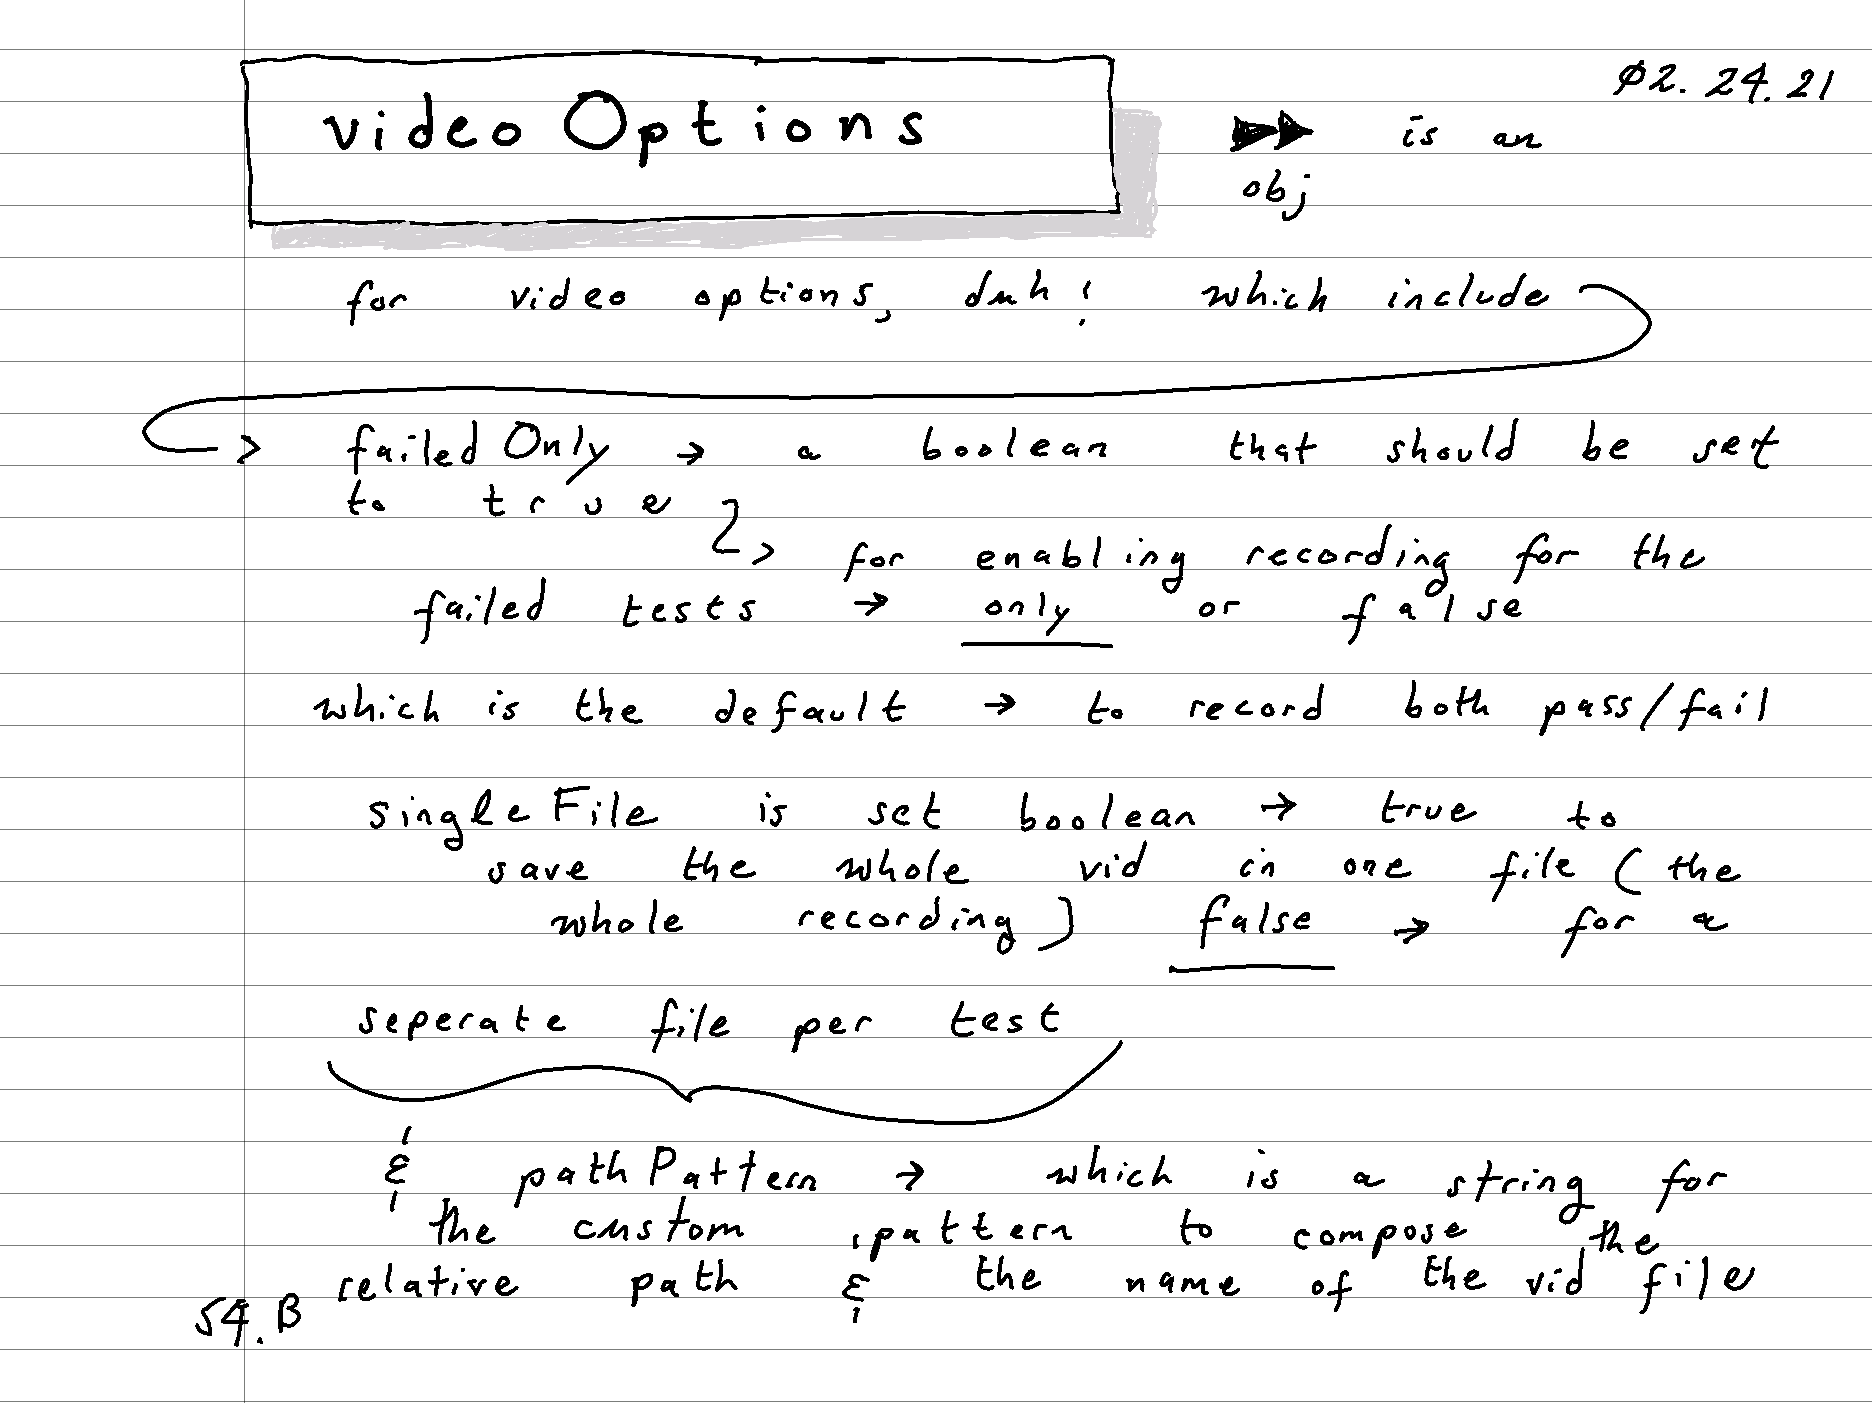 Ø2.24.21
videoOptions ▶▶ is an
obj
for video options, duh! which include
> failedOnly → a boolean that should be set
to true
> for enabling recording for the
failed tests → only or false
which is the default → to record both pass/fail
singleFile is set boolean → true to
save the whole vid in one file (the
whole recording) false → for a
seperate file per test
& pathPattern → which is a string for
the custom pattern to compose the
relative path & the name of the vid file
54.B